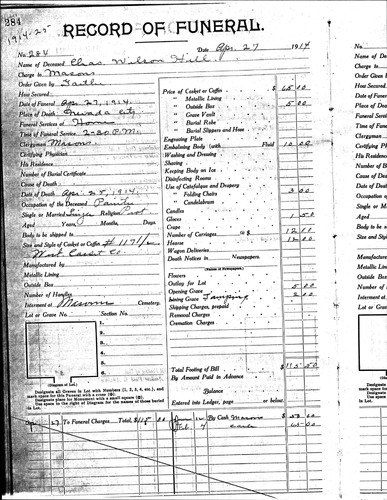 284
1914-25
RECORD OF FUNERAL.
No. 284
Date Apr. 27 1914
Name of Deceased Chas. Wilson Hill
Charge to Masons
Order Given by
How Secured
Date of Funeral Apr. 27, 1914.
Place of Death Nevada City
Funeral Services at Home
Time of Funeral Service 2-30 P.M.
Clergyman Masons
Certifying Physician
His Residence
Number of Burial Certificate
Cause of Death
Date of Death Apr. 25, 1914.
Occupation of the Deceased
Single or Married Single Religion not
Aged Years, Months, Days.
Body to be shipped to
Size and Style of Casket or Coffin
West Casket Co.
Manufactured by
Metallic Lining
Outside Box
Number of Handles
Interment at Masonic Cemetery.
Lot or Grave No. Section No.
1.
2.
3.
4.
5.
6.
(Diagram of Lot.)
Designate all Graves in Lot with Numbers (1, 2, 3, 4, etc.), and
mark space for this Funeral with a cross (X)
Designate place for Monument with a small square (□).
Use space to the right of Diagram for names of those buried
in Lot.
Price of Casket or Coffin $ 65 00
" Metallic Lining
" Outside Box 5 00
" Grave Vault
" Burial Robe
" Burial Slippers and Hose
Engraving Plate
Embalming Body (with Fluid 10 00
Washing and Dressing
Shaving
Keeping Body on Ice
Disinfecting Rooms
Use of Catafalque and Drapery
" Folding Chairs 3 00
" Candelabrum
Candles
Gloves 1 50
Crape
Number of Carriages 12 00
Hearse 12 00
Wagon Deliveries
Death Notices in Newspapers.
(Names of Newspapers)
Flowers
Outlay for Lot
Opening Grave 5 00
Lining Grave 2 00
Shipping Charges, prepaid
Removal Charges
Cremation Charges
Total Footing of Bill $ 115 50
By Amount Paid in Advance
Balance
Entered into Ledger, page or below.
Apr. 27 To Funeral Charges Total, $115 00
By Cash Masons $ 50 00
Feb. 4 65 00